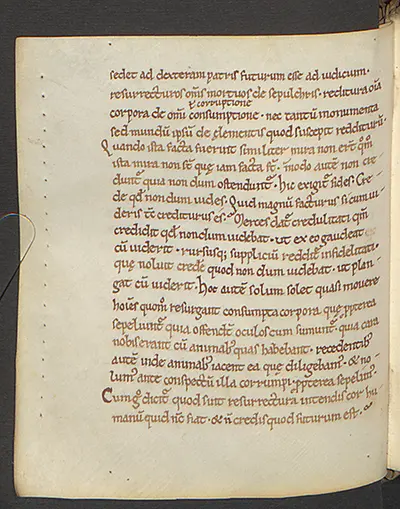 sedet ad dexteram patris futurum esse ad iudicium ·
resurrecturos om̅s mortuos de sepulchris · redditura om̅ia
& corruptione
corpora de om̅i consumptione · nec tantu̅ monumenta
sed mundu̅ ipsu̅ de elementis quod suscepit redditurū ·
Quando ista facta fuerint similiter mira non er̅t q̅m
ista mira non s̅t que iam facta s̅t · modo aute̅ non cre
dunt̅ quia non dum ostendunt̅ · hic exigit̅ fides · Cre
de qd̅ nondum uides · Quid magnu̅ facturus si cum ui
deris te̅ crediturus es · Merces dat̅ credulitati q̅m
credidit qd̅ nondum uidebat · ut ex eo gaudeat
cu̅ uiderit · rursusq; suppliciu̅ reddit̅ infidelitati ·
quę noluit crede̅ quod non dum uidebat · ut plan
gat cu̅ uiderit · Hoc aute̅ solum solet quasi mouere
ho̅es quom̅ resurgant consumpta corpora quę ꝓpterea
sepeliunt̅ quia offendic̅ oculos cum sumunt̅ · quia cara
nobis erant cu̅ animab; quas habebant · recedentib;
aute̅ inde animab; iacent ea quę diligebam̅ · & no
lum̅ ante conspectu̅ illa corrumpi · ꝓpterea sepelim̅ ·
Cum g̊ dicit̅ quod sunt resurrectura intendis cor hu
manu̅ quid no̅ fiat · & n̅ credis quod futurum est ·